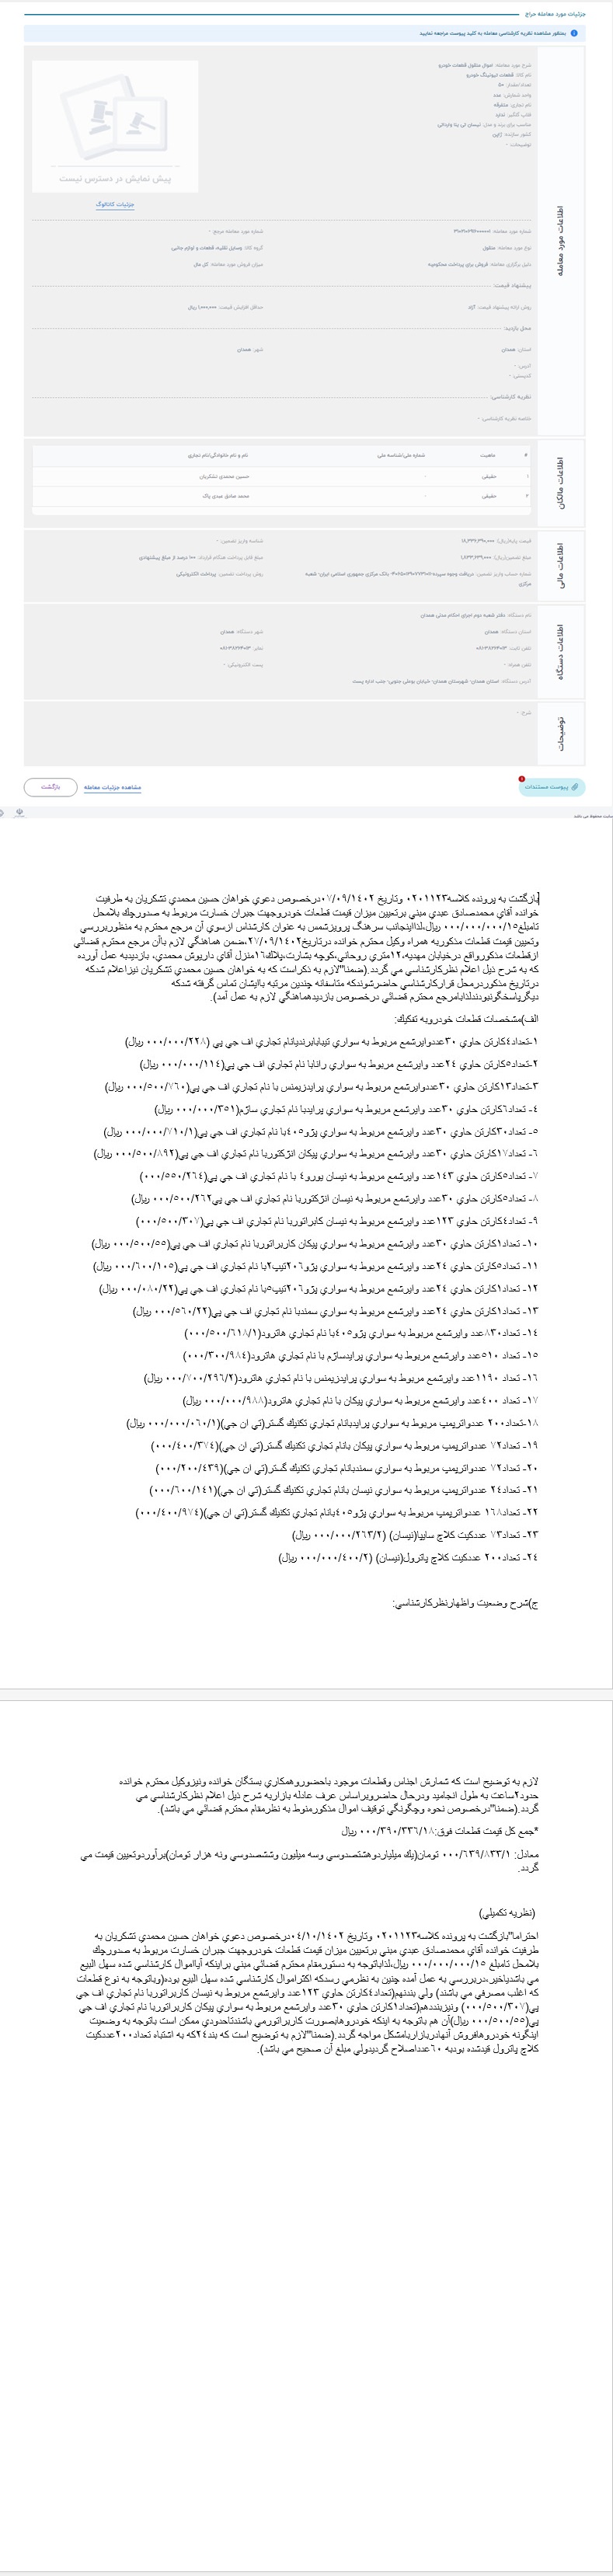 جزئیات مورد معامله حراج
بمنظور مشاهده نظریه کارشناسی معامله به کلید پیوست مراجعه نمایید
اطلاعات مورد معامله
شرح مورد معامله: اموال منقول قطعات خودرو
نام کالا: قطعات لیونینگ خودرو
تعداد/مقدار: ۵۰
واحد شمارش: عدد
نام تجاری: متفرقه
قالب گالگیر: ندارد
مناسب برای برند و مدل: نیسان تی ینا وارداتی
کشور سازنده: ژاپن
توضیحات: -
پیش نمایش در دسترس نیست
جزئیات کاتالوگ
شماره مورد معامله مرجع: -
نوع مورد معامله: منقول
گروه کالا: وسایل نقلیه، قطعات و لوازم جانبی
دلیل برگزاری معامله: فروش برای پرداخت محکوم‌به
میزان فروش مورد معامله: کل مال
پیشنهاد قیمت:
روش ارائه پیشنهاد قیمت: آزاد
حداقل افزایش قیمت: ۱,۰۰۰,۰۰۰ ریال
محل بازدید:
استان: همدان
شهر: همدان
آدرس: -
کدپستی: -
نظریه کارشناسی:
خلاصه نظریه کارشناسی: -
اطلاعات مالکان
# ماهیت شماره ملی/شناسه ملی نام و نام خانوادگی/نام تجاری
۱ حقیقی - حسین محمدی تشکریان
۲ حقیقی - محمد صادق عبدی پاک
اطلاعات مالی
قیمت پایه(ریال): ۱۸,۳۳۶,۳۹۰,۰۰۰
شناسه واریز تضمین: -
مبلغ تضمین(ریال): ۱,۸۳۳,۶۳۹,۰۰۰
مبلغ قابل پرداخت هنگام قرارداد: ۱۰۰ درصد از مبلغ پیشنهادی
روش پرداخت تضمین: پرداخت الکترونیکی
اطلاعات دستگاه
نام دستگاه: دفتر شعبه دوم اجرای احکام مدنی همدان
استان دستگاه: همدان
شهر دستگاه: همدان
تلفن همراه: -
پست الکترونیکی: -
آدرس دستگاه: استان همدان- شهرستان همدان- خیابان بوعلی جنوبی- جنب اداره پست
توضیحات
شرح: -
پیوست مستندات
۱
مشاهده جزئیات معامله
بازگشت
بازگشت به پرونده کلاسه۰۲۰۱۱۲۳ وتاریخ ۰۷/۰۹/۱۴۰۲درخصوص دعوي خواهان حسين محمدي تشکريان به طرفيت
خوانده آقاي محمدصادق عبدي مبني برتعيين ميزان قيمت قطعات خودروجهت جبران خسارت مربوط به صدورچك بلامحل
تامبلغ۰۰۰/۰۰۰/۰۰۰/۱۵ ريال،لذااينجانب سرهنگ پرويزشمس به عنوان کارشناس ازسوي آن مرجع محترم به منظوربررسي
وتعيين قيمت قطعات مذکوربه همراه وکيل محترم خوانده درتاريخ۲۷/۰۹/۱۴۰۲،ضمن هماهنگي لازم باآن مرجع محترم قضائي
ازقطعات مذکورواقع درخيابان مهديه،۱۲متري روحاني،کوچه بشارت،پلاك۱۶منزل آقاي داريوش محمدي، بازديدبه عمل آورده
که به شرح ذيل اعلام نظرکارشناسي مي گردد.(ضمنا"لازم به ذکراست که به خواهان حسين محمدي تشکريان نيزاعلام شدکه
درتاريخ مذکوردرمحل قرارکارشناسي حاضرشوندکه متاسفانه چندين مرتبه باايشان تماس گرفته شدکه
ديگرپاسخگونبودندلذابامرجع محترم قضائي درخصوص بازديدهماهنگي لازم به عمل آمد).
الف)مشخصات قطعات خودروبه تفکيك:
۱-تعداد۴کارتن حاوي ۳۰عددوايرشمع مربوط به سواري تيبابابرندبانام تجاري اف جي پي (۰۰۰/۰۰۰/۲۲۸ ريال)
۲-تعداد۵کارتن حاوي ۲۴عدد وايرشمع مربوط به سواري رانابا نام تجاري اف جي پي(۰۰۰/۰۰۰/۱۱۴ ريال)
۳-تعداد۱۳کارتن حاوي ۳۰عددوايرشمع مربوط به سواري پرايدزيمنس با نام تجاري اف جي پي(۰۰۰/۵۰۰/۷۶۰ ريال)
۴- تعداد۶کارتن حاوي ۳۰عدد وايرشمع مربوط به سواري پرايدبا نام تجاري ساژم(۰۰۰/۰۰۰/۳۵۱ ريال)
۵- تعداد۳۰کارتن حاوي ۳۰عدد وايرشمع مربوط به سواري پژو۴۰۵با نام تجاري اف جي پي(۰۰۰/۰۰۰/۷۱۰/۱ ريال)
۶- تعداد۱۷کارتن حاوي ۳۰عدد وايرشمع مربوط به سواري پيکان انژکتوربا نام تجاري اف جي پي(۰۰۰/۵۰۰/۸۹۲ ريال)
۷- تعداد۵کارتن حاوي ۱۴۳عدد وايرشمع مربوط به نيسان يورو۴ با نام تجاري اف جي پي(۰۰۰/۵۵۰/۲۶۴)
۸- تعداد۵کارتن حاوي ۳۰عدد وايرشمع مربوط به نيسان انژکتوربا نام تجاري اف جي پي(۰۰۰/۵۰۰/۲۶۲ ريال)
۹- تعداد۴کارتن حاوي ۱۲۳عدد وايرشمع مربوط به نيسان کابراتوربا نام تجاري اف جي پي(۰۰۰/۵۰۰/۳۰۷)
۱۰- تعداد۱کارتن حاوي ۳۰عدد وايرشمع مربوط به سواري پيکان کاربراتوربا نام تجاري اف جي پي(۰۰۰/۵۰۰/۵۵ ريال)
۱۱- تعداد۵کارتن حاوي ۲۴عدد وايرشمع مربوط به سواري پژو۲۰۶تيپ۲با نام تجاري اف جي پي(۰۰۰/۶۰۰/۱۰۵ ريال)
۱۲- تعداد۱کارتن حاوي ۲۴عدد وايرشمع مربوط به سواري پژو۲۰۶تيپ۵با نام تجاري اف جي پي(۰۰۰/۰۸۰/۲۲ ريال)
۱۳- تعداد۱کارتن حاوي ۲۴عدد وايرشمع مربوط به سواري سمندبا نام تجاري اف جي پي(۰۰۰/۵۶۰/۲۲ ريال)
۱۴- تعداد۸۳۰عدد وايرشمع مربوط به سواري پژو۴۰۵با نام تجاري هاترود(۰۰۰/۵۰۰/۶۱۸/۱)
۱۵- تعداد ۵۱۰عدد وايرشمع مربوط به سواري پرايدساژم با نام تجاري هاترود(۰۰۰/۳۰۰/۹۸۴)
۱۶- تعداد ۱۱۹۰عدد وايرشمع مربوط به سواري پرايدزيمنس با نام تجاري هاترود(۰۰۰/۷۰۰/۲۹۶/۲ ريال)
۱۷- تعداد ۴۰۰عدد وايرشمع مربوط به سواري پيکان با نام تجاري هاترود(۰۰۰/۰۰۰/۹۸۸ ريال)
۱۸-تعداد۲۰۰ عددواترپمپ مربوط به سواري پرايدبانام تجاري تکنيك گستر(تي ان جي)(۰۰۰/۰۰۰/۰۶۰/۱ ريال)
۱۹- تعداد۷۲ عددواترپمپ مربوط به سواري پيکان بانام تجاري تکنيك گستر(تي ان جي)(۰۰۰/۴۰۰/۳۷۴)
۲۰- تعداد۷۲ عددواترپمپ مربوط به سواري سمندبانام تجاري تکنيك گستر(تي ان جي)(۰۰۰/۲۰۰/۴۳۹)
۲۱- تعداد۲۴ عددواترپمپ مربوط به سواري نيسان بانام تجاري تکنيك گستر(تي ان جي)(۰۰۰/۶۰۰/۱۴۱)
۲۲- تعداد۱۶۸ عددواترپمپ مربوط به سواري پژو۴۰۵بانام تجاري تکنيك گستر(تي ان جي)(۰۰۰/۴۰۰/۹۷۴)
۲۳- تعداد۷۳ عددکيت کلاچ سايپا(نيسان) (۰۰۰/۰۰۰/۲۶۳/۲ ريال)
۲۴- تعداد۲۰۰ عددکيت کلاچ پاترول(نيسان) (۰۰۰/۰۰۰/۴۰۰/۲ ريال)
ج)شرح وضعيت واظهارنظرکارشناسي:
لازم به توضيح است که شمارش اجناس وقطعات موجود باحضوروهمکاري بستگان خوانده ونيزوکيل محترم خوانده
حدود۲ساعت به طول انجاميد ودرحال حاضروبراساس عرف عادله بازاربه شرح ذيل اعلام نظرکارشناسي مي
گردد.(ضمنا"درخصوص نحوه وچگونگي توقيف اموال مذکورمنوط به نظرمقام محترم قضائي مي باشد).
*جمع کل قيمت قطعات فوق:۰۰۰/۳۹۰/۳۳۶/۱۸ ريال
معادل: ۰۰۰/۶۳۹/۸۳۳/۱ تومان(يك ميلياردوهشتصدوسي وسه ميليون وششصدوسي ونه هزار تومان)برآوردوتعيين قيمت مي
گردد.
(نظريه تکميلي)
احتراما"بازگشت به پرونده کلاسه۰۲۰۱۱۲۳ وتاريخ ۰۴/۱۰/۱۴۰۲درخصوص دعوي خواهان حسين محمدي تشکريان به
طرفيت خوانده آقاي محمدصادق عبدي مبني برتعيين ميزان قيمت قطعات خودروجهت جبران خسارت مربوط به صدورچك
بلامحل تامبلغ ۰۰۰/۰۰۰/۰۰۰/۱۵ ريال،لذاباتوجه به دستورمقام محترم قضائي مبني براينکه آيااموال کارشناسي شده سهل البيع
مي باشدياخير،دربررسي به عمل آمده چنين به نظرمي رسدکه اکثراموال کارشناسي شده سهل البيع بوده(وباتوجه به نوع قطعات
که اغلب مصرفي مي باشند) ولي بندنهم(تعداد۴کارتن حاوي ۱۲۳عدد وايرشمع مربوط به نيسان کاربراتوربا نام تجاري اف جي
پي(۰۰۰/۵۰۰/۳۰۷) ونيزبنددهم(تعداد۱کارتن حاوي ۳۰عدد وايرشمع مربوط به سواري پيکان کاربراتوربا نام تجاري اف جي
پي(۰۰۰/۵۰۰/۵۵ ريال)آن هم باتوجه به اينکه خودروهابصورت کاربراتورمي باشندتاحدودي ممکن است باتوجه به وضعيت
اينگونه خودروهافروش آنهادربازاربامشکل مواجه گردد.(ضمنا"لازم به توضيح است که بند۲۴که به اشتباه تعداد۲۰۰عددکيت
کلاچ پاترول قيدشده بودبه ۶۰عدداصلاح گرديدولي مبلغ آن صحيح مي باشد).